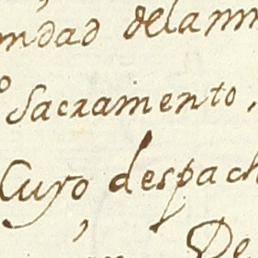 ndad delann
o Sacramento,
Cuyo despach
De